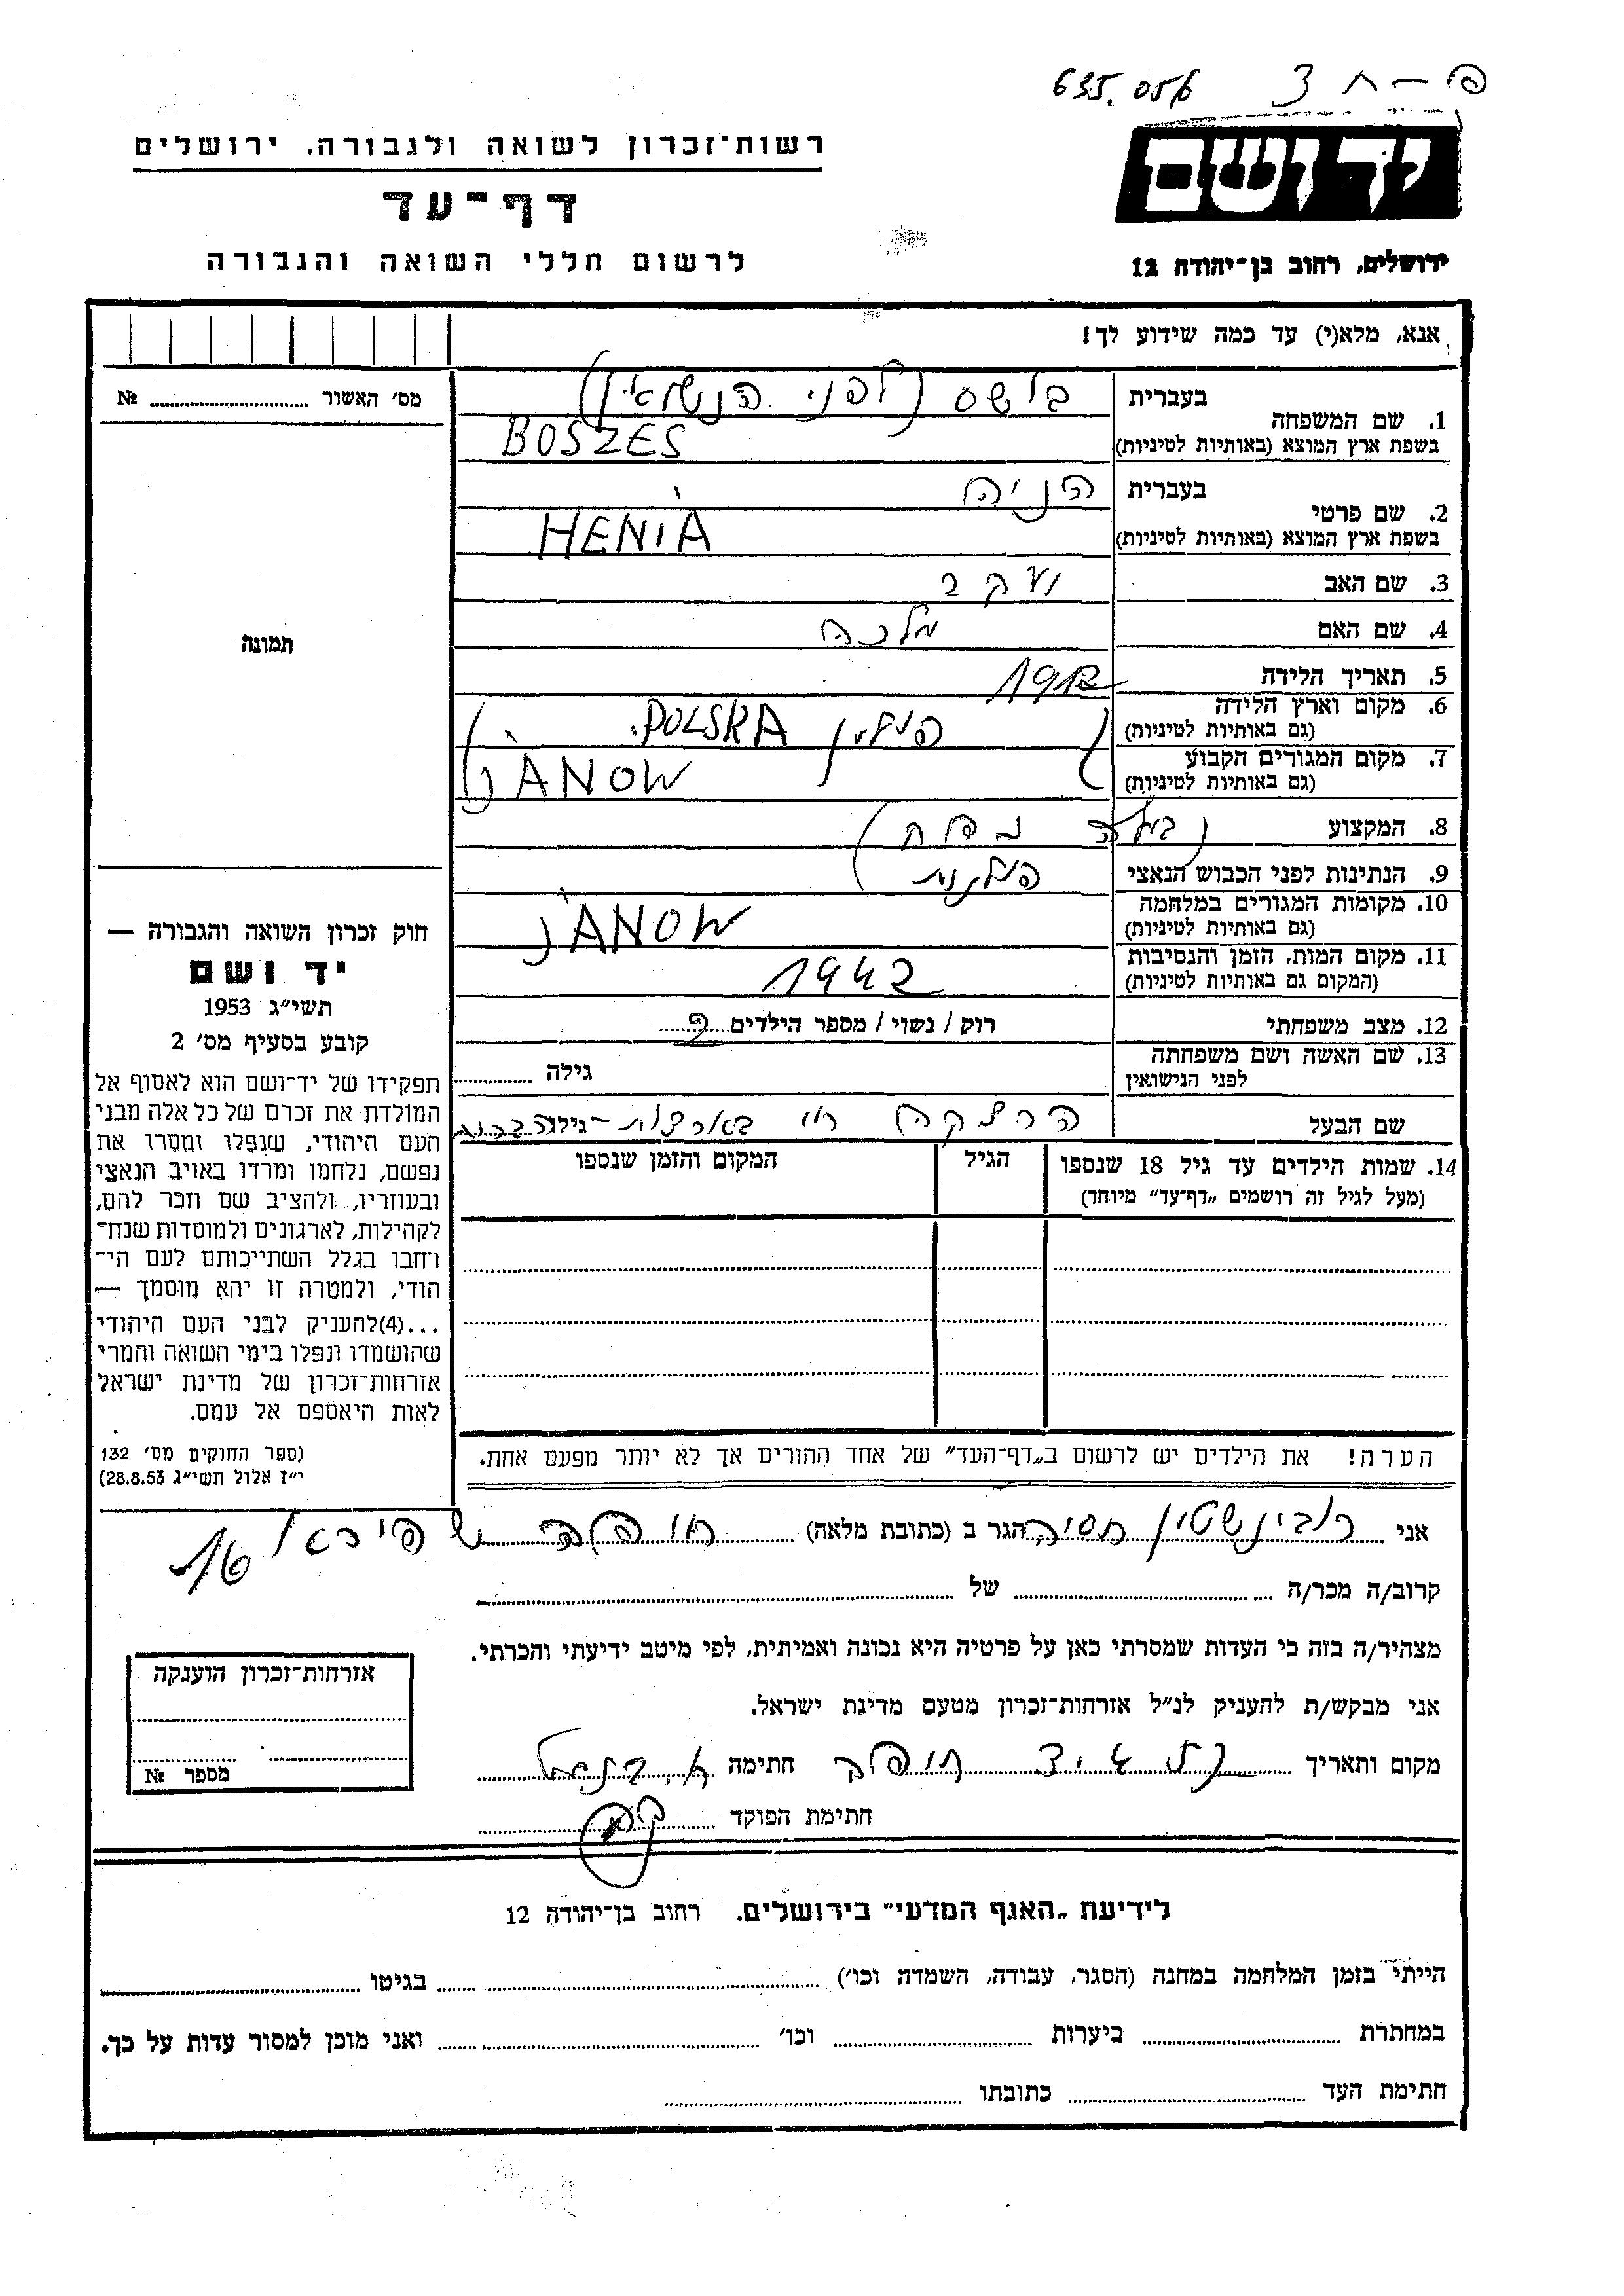 635.056 פ-ח 3
רשות־זכרון לשואה ולגבורה. ירושלים
יד ושם
דף־עד
לרשום חללי השואה והגבורה
ירושלים, רחוב בן־יהודה 12
אנא, מלא(י) עד כמה שידוע לך!
מס׳ האשור № ........
1. שם המשפחה
בעברית בושס (לפני הנשואין)
בשפת ארץ המוצא (באותיות לטיניות) BOSZES
2. שם פרטי
בעברית הניה
בשפת ארץ המוצא (באותיות לטיניות) HENIA
3. שם האב יעקב
4. שם האם מלכה
תמונה
5. תאריך הלידה 1912
6. מקום וארץ הלידה
(גם באותיות לטיניות) פולין POLSKA.
7. מקום המגורים הקבוע
(גם באותיות לטיניות) JANOW
8. המקצוע
9. הנתינות לפני הכבוש הנאצי פולנית
10. מקומות המגורים במלחמה
(גם באותיות לטיניות) JANOW
11. מקום המות, הזמן והנסיבות
(המקום גם באותיות לטיניות) 1942
12. מצב משפחתי רוק / נשוי / מספר הילדים
13. שם האשה ושם משפחתה
לפני הנישואין גילה
שם הבעל גילו
14. שמות הילדים עד גיל 18 שנספו הגיל המקום והזמן שנספו
(מעל לגיל זה רושמים „דף־עד״ מיוחד)
הערה! את הילדים יש לרשום ב„דף־העד״ של אחד ההורים אך לא יותר מפעם אחת.
חוק זכרון השואה והגבורה —
יד ושם
תשי״ג 1953
קובע בסעיף מס׳ 2
תפקידו של יד־ושם הוא לאסוף אל
המולדת את זכרם של כל אלה מבני
העם היהודי, שנפלו ומסרו את
נפשם, נלחמו ומרדו באויב הנאצי
ובעוזריו, ולהציב שם וזכר להם,
לקהילות, לארגונים ולמוסדות שנח־
רחבו בגלל השתייכותם לעם הי־
הודי, ולמטרה זו יהא מוסמך —
...(4)להעניק לבני העם היהודי
שהושמדו ונפלו בימי השואה והמרי
אזרחות־זכרון של מדינת ישראל
לאות היאספם אל עמם.
(ספר החוקים מס׳ 132
י״ז אלול תשי״ג 28.8.53)
אני רובינשטיין הגר ב (כתובת מלאה) שפירא
קרוב/ה מכר/ה ........ של ........
מצהיר/ה בזה כי העדות שמסרתי כאן על פרטיה היא נכונה ואמיתית, לפי מיטב ידיעתי והכרתי.
אני מבקש/ת להעניק לנ״ל אזרחות־זכרון מטעם מדינת ישראל.
מקום ותאריך חתימה
חתימת הפוקד
אזרחות־זכרון הוענקה
מספר №
לידיעת „האגף המדעי״ בירושלים. רחוב בן־יהודה 12
הייתי בזמן המלחמה במחנה (הסגר, עבודה, השמדה וכו׳) ........ בגיטו ........
במחתרת ........ ביערות ........ וכו׳ ........ ואני מוכן למסור עדות על כך.
חתימת העד ........ כתובתו ........